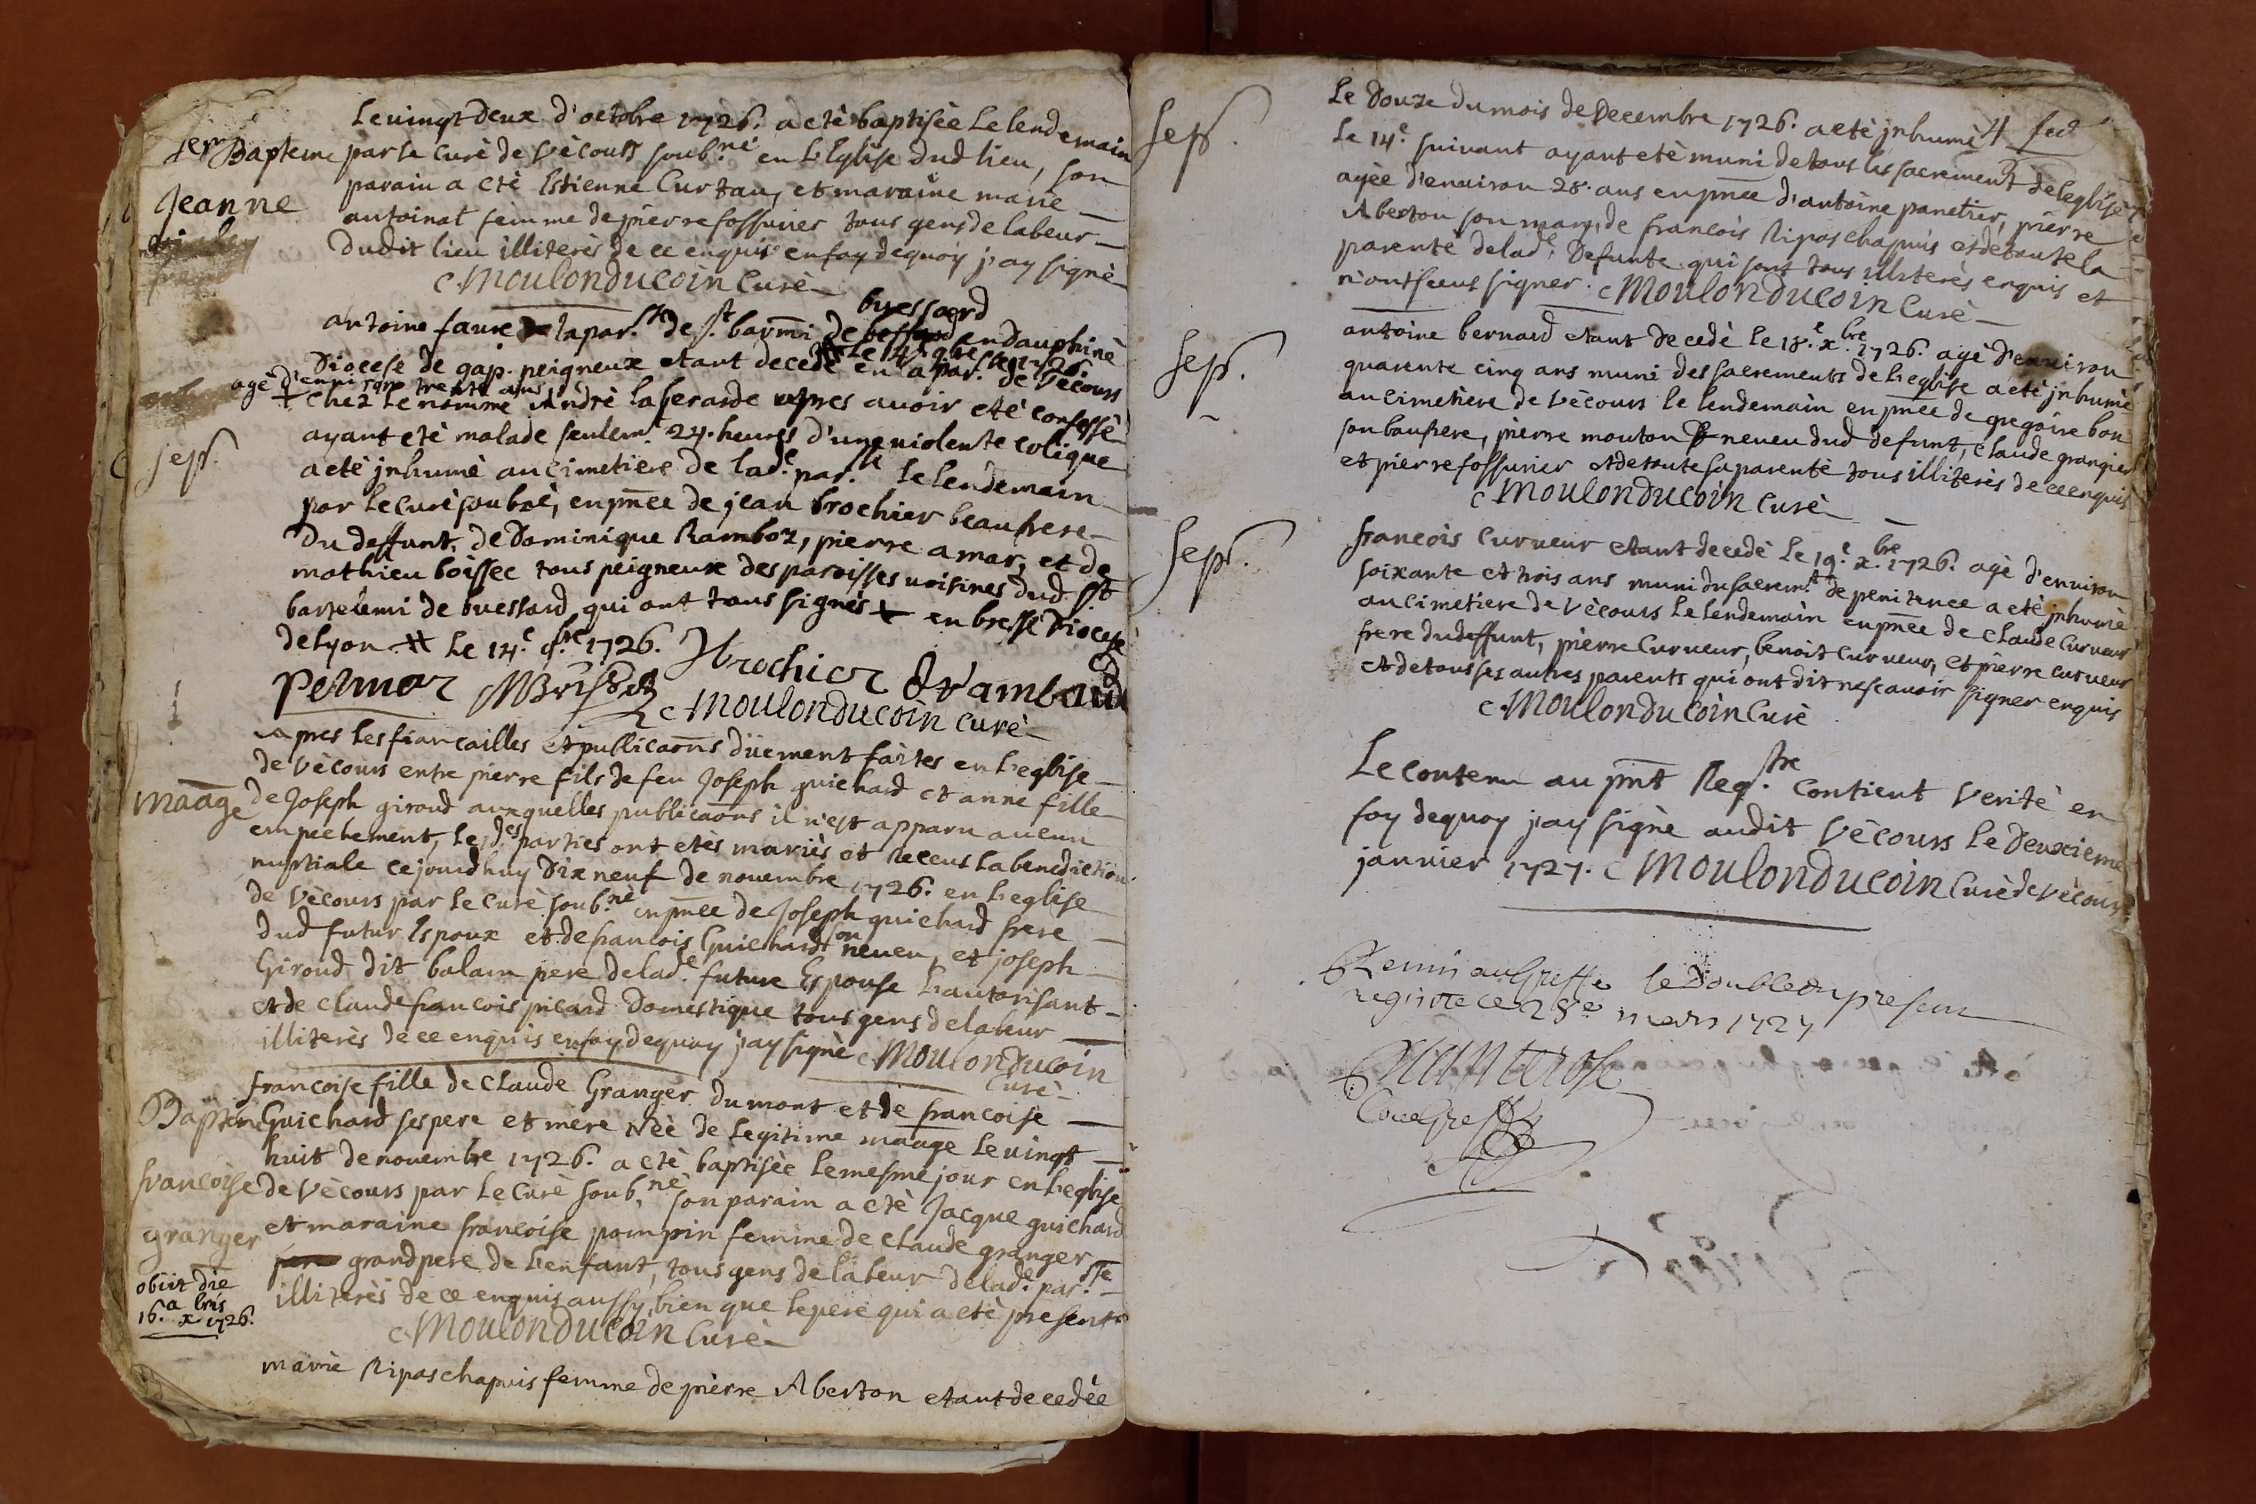 Le vingt deux d'octobre 1726. a eté baptisèe Le lendemain
1er Bapteme par le curè de Vècours soub.nè en L'Eglise dud lieu, son
parain a etè Estienne Curtau, et maraine marie
Jeanne
antoinat femme de pierre fossurier tous gens de labeur
dudit lieu illiterès de ce enquis en foy dequoy j'ay signè
Moulonducoin Curè
buessard
antoine faure de la par.sse de s.t barmi de en Dauphinè
Diocese de gap. peigneux etant decedè en la par.sse de Vècours
agè d'environ trente ans
chez le nommè Andrè laferarde apres avoir etè confessè
ayant etè malade seulem.t 24. heures d'une violente colique
sep.
a etè jnhumè au cimetiere de lad.e par.sse le lendemain
par le curè soubnè, en pnce de jean brochier beaufrere
du deffunt, de Dominique Ramboz, pierre amar, et de
mathieu boissec tous peigneux des paroisses voisines dud st
bartelemi de buessard qui ont tous signès + en bresse Diocese
de Lyon # Le 14.e 9.bre 1726.
Jbrochier D rambaud
Pelmar
Moulonducoin curè
apres les fiancailles et publicaons düement faites en L'eglise
de Vècours entre pierre fils de feu Joseph guichard et anne fille
maage
de Joseph giroud auxquelles publicaons il n'est apparu aucun
empechement, lesd.es parties ont etès mariès et Receus la benediction
nuptiale ce jourdhuy Dix neuf de novembre 1726. en L'eglise
de Vècours par le Curè soub.nè en pnce de Joseph guichard frere
dud futur Espoux et de francois Guichard son neveu, et joseph
Giroud dit balam pere de lad.e future Espouse L'autorisant
et de claude francois picard Domestique tous gens de labeur
illiterès de ce enquis en foy dequoy j'ay signè Moulonducoin
curè
francoise fille de claude Granger dumont et de francoise
Bapteme
Guichard ses pere et mère Nèè de Legitime maage Le vingt
huit de novembre 1726. a etè baptisèe le mesme jour en L'eglise
francoise
de Vècours par Le Curè soub.nè son parain a etè Jacque guichard
granger
et maraine francoise pompin femme de claude granger
grandpere de L'enfant, tous gens de labeur de lad.e par.sse
obiit die
16.a xbris 1726.
illiterès de ce enquis aussy bien que le pere qui a etè present
Moulonducoin Curè
marie Ripaschapuis femme de pièrre Aberton etant decedèe
Le Douze du mois de Decembre 1726. a etè jnhumè
sep.
Le 14.e suivant ayant etè muni de tous les sacrement de L'eglise
agèe d'environ 28. ans en pnce d'antoine panetier, pierre
Aberton son mary, de francois Ripaschapuis et de toute la
parentè de lad.e Defunte qui sont tous illiterès enquis et
n'ont sceus signer. Moulonducoin Curè
antoine bernard etant decedè le 18.e x.bre 1726. agè d'environ
sep.
quarente cinq ans muni des sacrements de L'eglise a etè jnhumè
au cimetière de Vècours le lendemain en pnce de gregoire bon
son baufrere, pierre mouton neveu dud defunt, claude grangier
et pierre fossurier et de toute sa parentè tous illiterès de ce enquis
Moulonducoin Curè
francois Curveur etant decedè Le 19.e x.bre 1726. agè d'environ
sep.
soixante et trois ans muni du sacrem.t de penitence a etè jnhumè
au cimetiere de Vècours Le lendemain en pnce de claude Curveur
frere du deffunt, pierre Curveur, benoit curveur, et pierre curveur
et de tous ses autres parents qui ont dit ne scavoir signer enquis
Moulonducoin Curè
Le contenu au pnt Reg.tre Contient Veritè en
foy dequoy j'ay signè audit Vècours Le Deuxieme
janvier 1727. Moulonducoin Curè de Vècours
Remis au Greffe le Double du present
registre ce 28e mars 1727